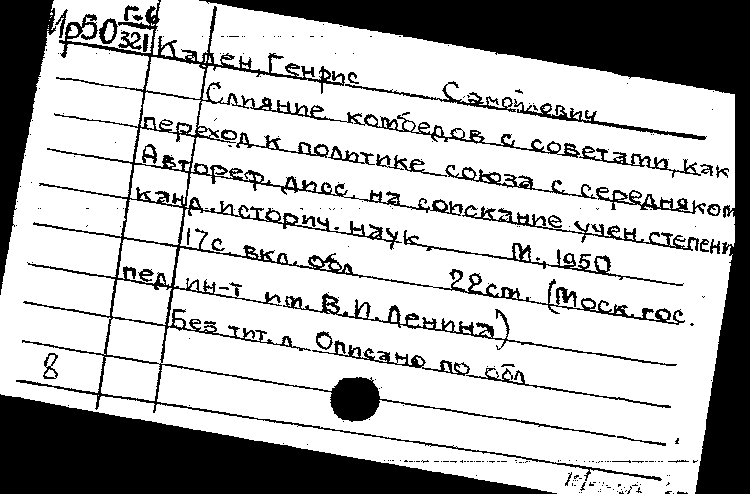 Ир50 Г-6
321
Каден, Генрис Самойлович
Слияние комбедов с советами, как
переход к политике союза с середняком
Автореф. дисс. на соискание учен. степени
канд. историч. наук. М., 1950.
17с. вкл. обл. 22см. (Моск. гос.
пед. ин-т им. В.И. Ленина)
Без тит. л. Описано по обл.
8